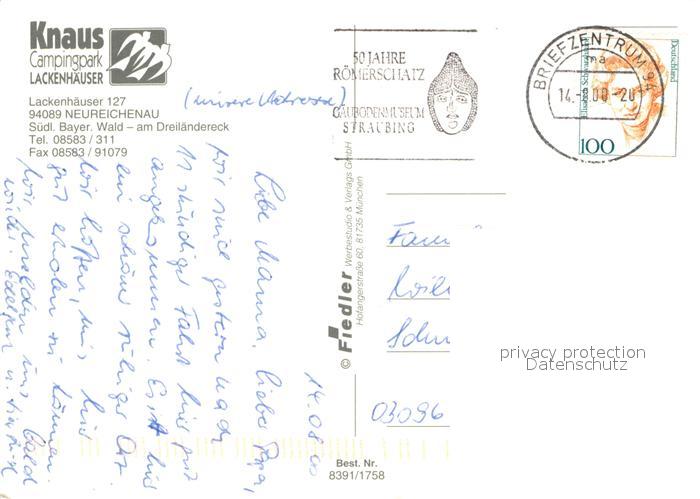 Knaus
Campingpark
LACKENHÄUSER
Lackenhäuser 127
94089 NEUREICHENAU
Südl. Bayer. Wald – am Dreiländereck
Tel. 08583 / 311
Fax 08583 / 91079
(unsere Adresse)
50 JAHRE
RÖMERSCHATZ
GÄUBODENMUSEUM
STRAUBING
BRIEFZENTRUM 94
ma
14.-8.00-20
Deutschland
100
14.08.00
Liebe Mama, lieber Papa,
wir sind gestern nach
11 stündiger Fahrt hier gut
angekommen. Es ist hier
ein schöner ruhiger Ort.
Wir hoffen, uns hier
gut erholen zu können.
Wir melden uns bald
wieder.
© Fiedler Werbestudio & Verlags GmbH
Hofangerstraße 60, 81735 München
Fam
03096
privacy protection
Datenschutz
Best. Nr.
8391/1758